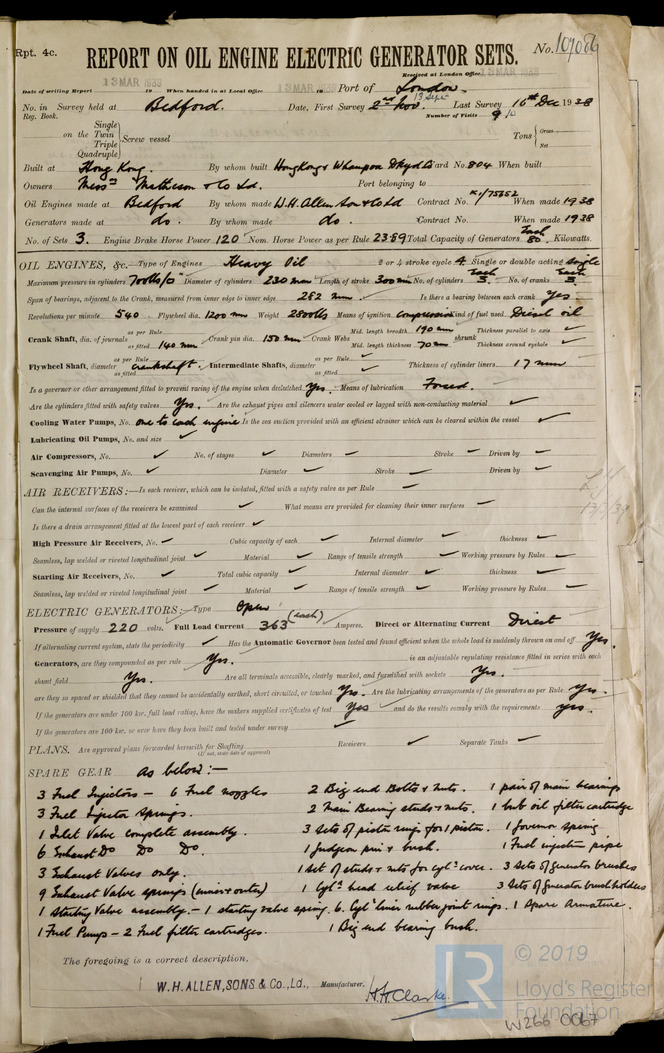 Rpt. 4c.
REPORT ON OIL ENGINE ELECTRIC GENERATOR SETS.
No. 107086
Received at London Office 13 MAR 1939
Date of writing Report 13 MAR 1939 19 When handed in at Local Office 13 MAR 1939 19 Port of London.
No. in Survey held at Bedford. Date, First Survey 2nd Nov. 13 Sept Last Survey 16th Dec 1938
Reg. Book. Number of Visits 9/10
on the Single Twin Triple Quadruple Screw vessel Tons Gross Net
Built at Hong Kong. By whom built HongKong & Whampoa Dkyd Ld Yard No. 804 When built
Owners Messrs Matheson & Co Ld. Port belonging to
Oil Engines made at Bedford By whom made W.H. Allen Son & Co Ld Contract No. K1/75652 When made 1938
Generators made at do. By whom made do. Contract No. When made 1938
No. of Sets 3. Engine Brake Horse Power 120 Nom. Horse Power as per Rule 23.89 Total Capacity of Generators Each 80 Kilowatts.
OIL ENGINES, &c.—Type of Engines Heavy Oil 2 or 4 stroke cycle 4 Single or double acting Single
Maximum pressure in cylinders 700 lbs/□" Diameter of cylinders 230 mm Length of stroke 300 mm No. of cylinders Each 3. No. of cranks Each 3.
Span of bearings, adjacent to the Crank, measured from inner edge to inner edge 282 mm. Is there a bearing between each crank Yes.
Revolutions per minute 540 Flywheel dia. 1200 mm Weight 2800 lbs Means of ignition compression Kind of fuel used Diesel oil
Crank Shaft, dia. of journals as per Rule as fitted 140 mm Crank pin dia. 150 mm Crank Webs Mid. length breadth 190 mm Mid. length thickness 70 mm shrunk Thickness parallel to axis ✓ Thickness around eyehole ✓
Flywheel Shaft, diameter as per Rule as fitted crankshaft. Intermediate Shafts, diameter as per Rule ✓ as fitted ✓ Thickness of cylinder liners 17 mm
Is a governor or other arrangement fitted to prevent racing of the engine when declutched Yes. Means of lubrication Forced.
Are the cylinders fitted with safety valves Yes. Are the exhaust pipes and silencers water cooled or lagged with non-conducting material ✓
Cooling Water Pumps, No. one to each engine Is the sea suction provided with an efficient strainer which can be cleared within the vessel ✓
Lubricating Oil Pumps, No. and size ✓
Air Compressors, No. ✓ No. of stages ✓ Diameters ✓ Stroke ✓ Driven by ✓
Scavenging Air Pumps, No. ✓ Diameter ✓ Stroke ✓ Driven by ✓
AIR RECEIVERS:—Is each receiver, which can be isolated, fitted with a safety valve as per Rule ✓
Can the internal surfaces of the receivers be examined ✓ What means are provided for cleaning their inner surfaces ✓
Is there a drain arrangement fitted at the lowest part of each receiver ✓
High Pressure Air Receivers, No. ✓ Cubic capacity of each ✓ Internal diameter ✓ thickness ✓
Seamless, lap welded or riveted longitudinal joint ✓ Material ✓ Range of tensile strength ✓ Working pressure by Rules ✓
Starting Air Receivers, No. ✓ Total cubic capacity ✓ Internal diameter ✓ thickness ✓
Seamless, lap welded or riveted longitudinal joint ✓ Material ✓ Range of tensile strength ✓ Working pressure by Rules ✓
ELECTRIC GENERATORS:—Type Open
Pressure of supply 220 volts. Full Load Current 363 (each) Amperes. Direct or Alternating Current Direct
If alternating current system, state the periodicity ✓ Has the Automatic Governor been tested and found efficient when the whole load is suddenly thrown on and off Yes.
Generators, are they compounded as per rule Yes. is an adjustable regulating resistance fitted in series with each
shunt field Yes. Are all terminals accessible, clearly marked, and furnished with sockets Yes.
are they so spaced or shielded that they cannot be accidentally earthed, short circuited, or touched Yes. Are the lubricating arrangements of the generators as per Rule Yes.
If the generators are under 100 kw. full load rating, have the makers supplied certificates of test Yes and do the results comply with the requirements Yes.
If the generators are 100 kw. or over have they been built and tested under survey ✓
PLANS. Are approved plans forwarded herewith for Shafting (If not, state date of approval) Receivers ✓ Separate Tanks ✓
SPARE GEAR as below:—
3 Fuel Injectors — 6 Fuel nozzles 2 Big end Bolts & Nuts. 1 pair of main bearings
3 Fuel Injector springs. 2 Main Bearing studs & nuts. 1 lub oil filter cartridge
1 Inlet Valve complete assembly. 3 sets of piston rings for 1 piston. 1 Governor spring
6 Exhaust Do Do Do. 1 Gudgeon pin & bush. 1 Fuel injection pipe
3 Exhaust Valves only. 1 set of studs & nuts for cylr cover. 3 sets of generator brushes
9 Exhaust Valve springs (inner & outer) 1 Cylr head relief valve 3 Sets of generator brushholders
1 starting Valve assembly. — 1 starting valve spring. 6. Cylr liner rubber joint rings. 1 Spare Armature.
1 Fuel Pump — 2 Fuel filter cartridges. 1 Big end bearing bush.
The foregoing is a correct description,
W.H. ALLEN, SONS & Co., Ld., Manufacturer. H.H. Clarke.
© 2019
LR
Lloyd's Register
Foundation
W266 0067